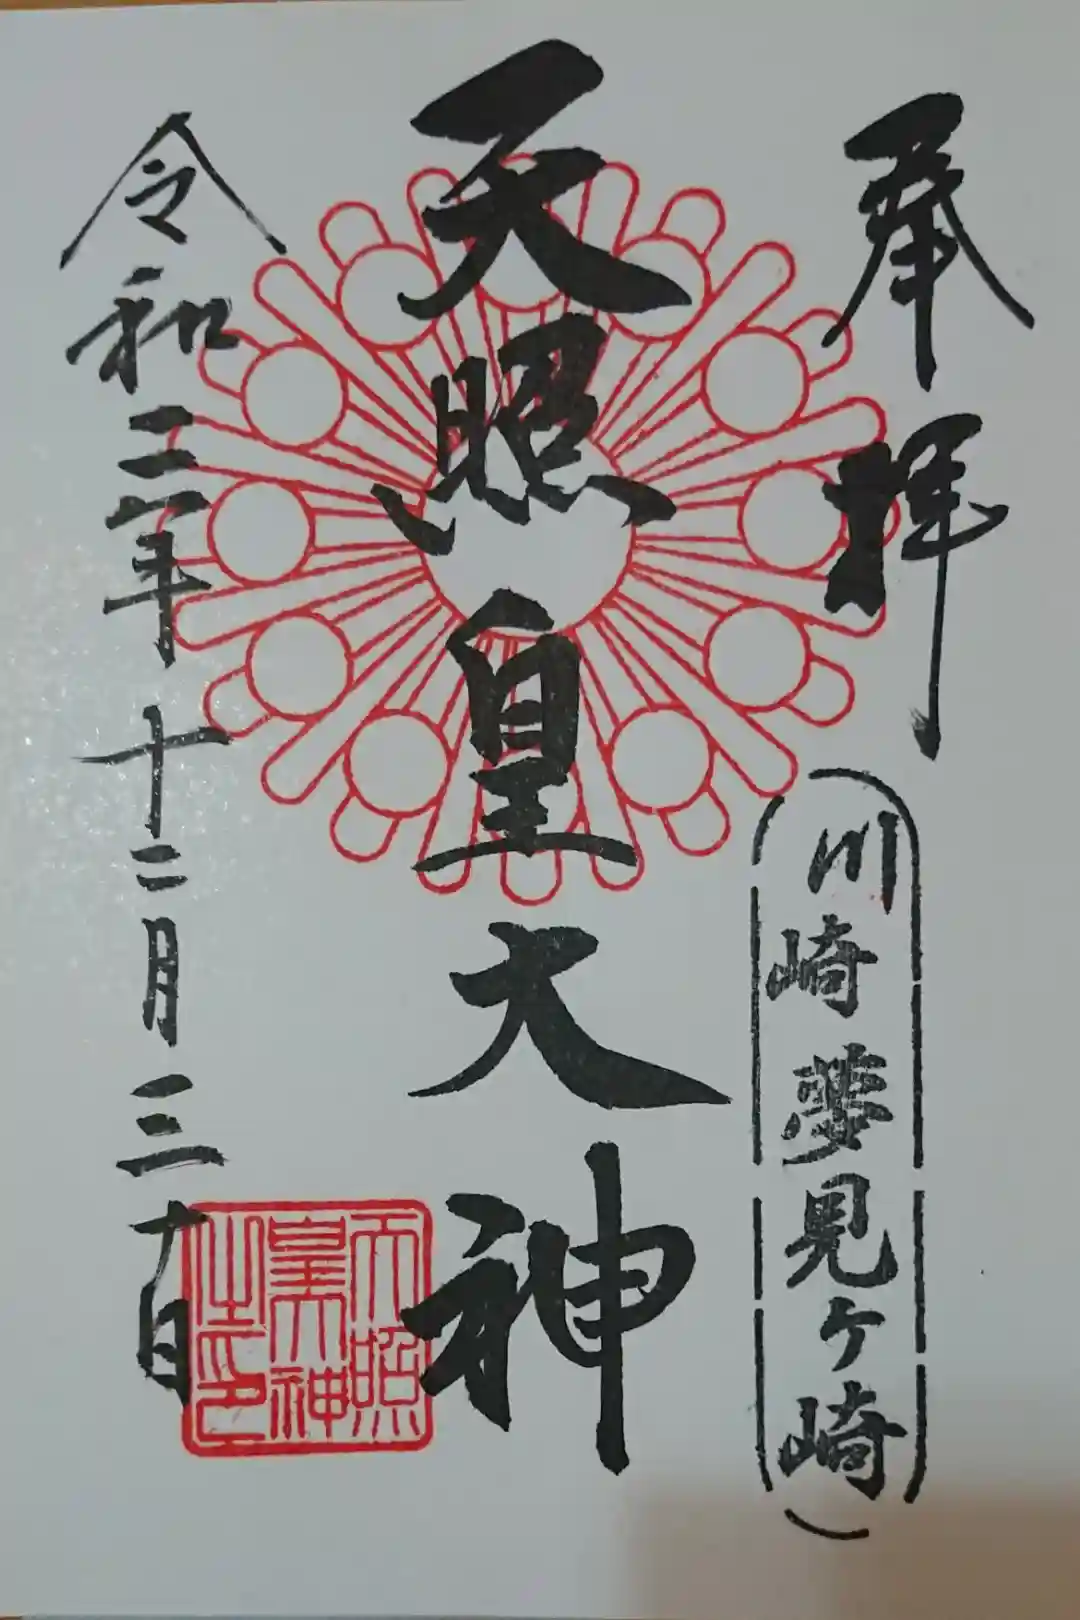 奉拝
川崎夢見ヶ崎
天照皇大神
天照
皇大神
之印
令和三年十二月三十日